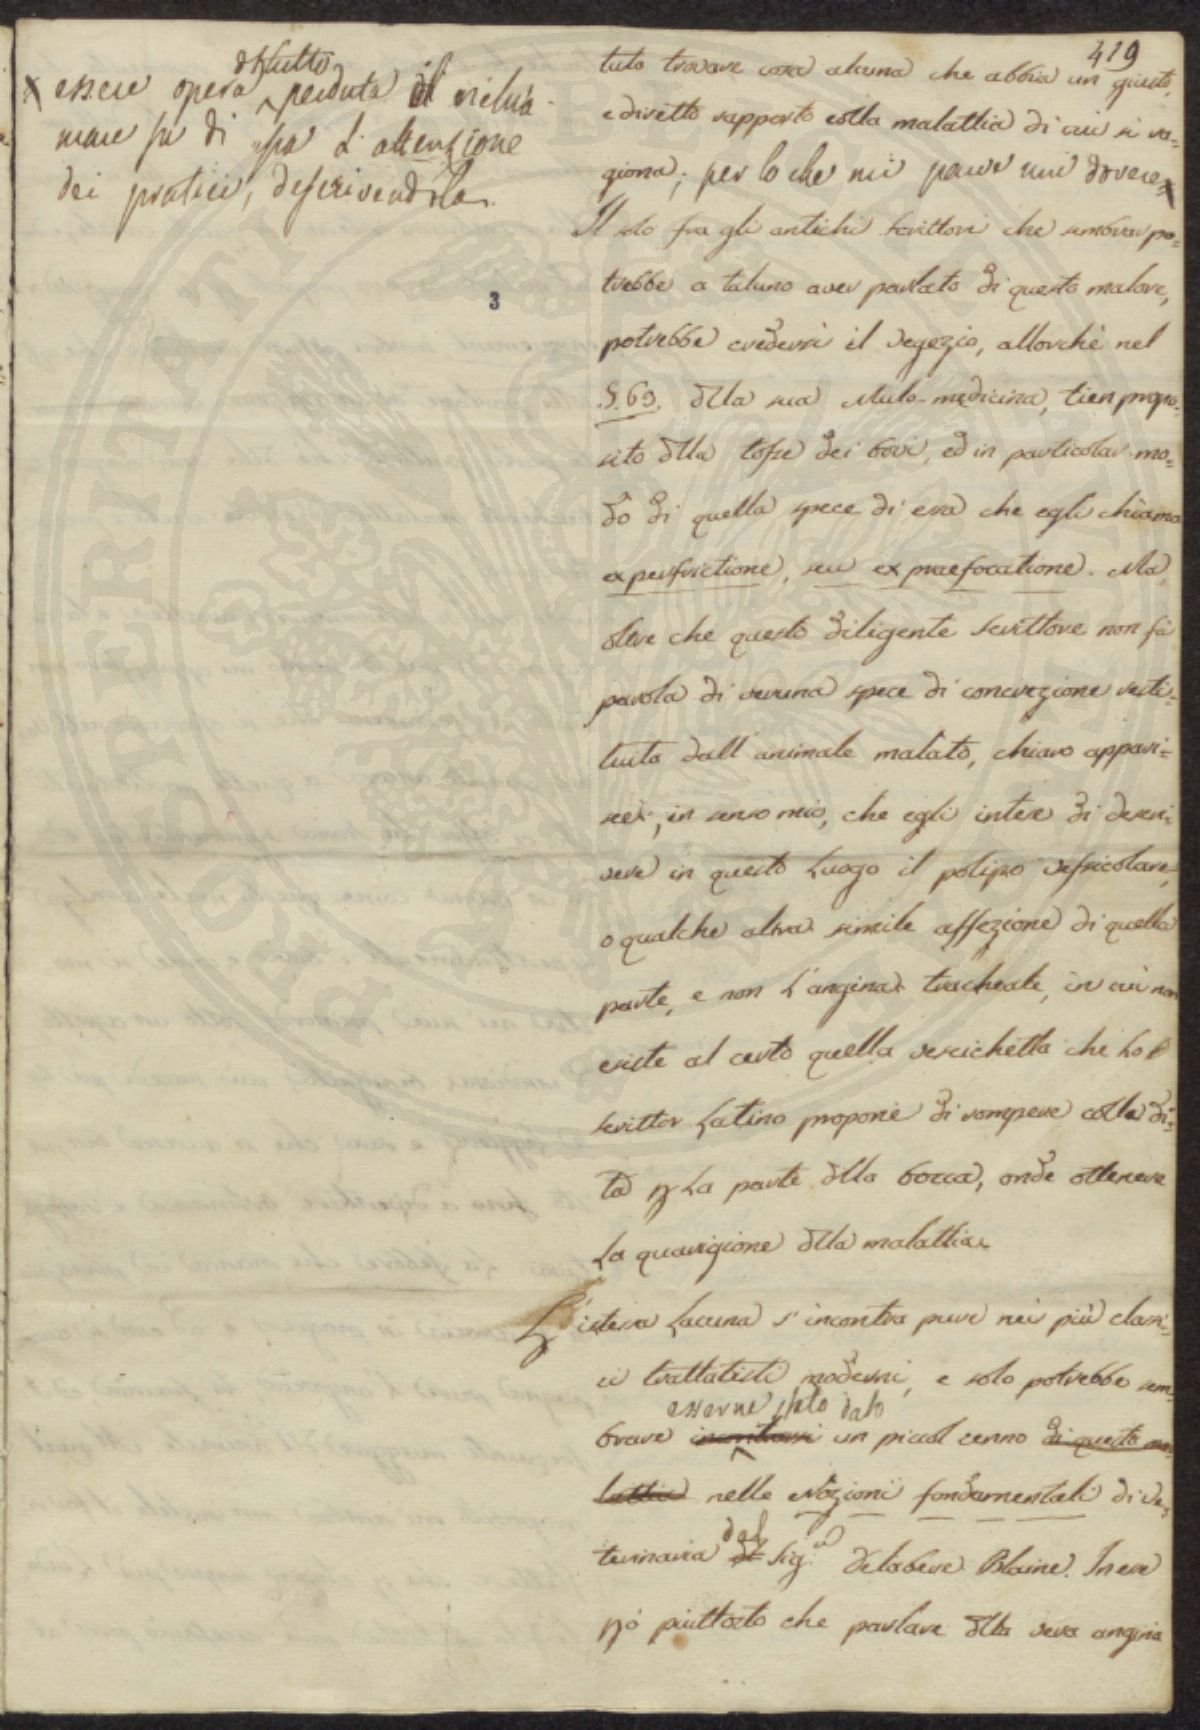 419
dltutto
x essere opera ^ perduta il richia-
mare su di essa l'attenzione
dei pratici, descrivendola.
3
tuto trovare cosa alcuna che abbia un giusto,
e diretto rapporto colla malattia di cui si ra=
giona; per lo che mi parve non dovere x
Il solo fra gli antichi scrittori che sembrar po=
trebbe a taluno aver parlato di questo malore,
potrebbe credersi il Vegezio, allorchè nel
§. 69. dlla sua Mulo-medicina, tien propo=
sito dlla tosse dei bovi, ed in particolar mo=
do di quella spece di essa che egli chiama
ex perfrictione, seu ex praefocatione. Ma,
oltre che questo diligente scrittore non fà
parola di veruna spece di concrezione resti=
tuita dall'animale malato, chiaro appari=
sce, in senso mio, che egli intese di descri=
vere in questo luogo il polipo vessicolare,
o qualche altra simile affezione di quella
parte, e non l'angina tracheale, in cui non
esiste al certo quella vescichetta che lo
scrittor Latino propone di rompere colle di=
ta p la parte dlla bocca, onde ottenere
la guarigione dlla malattia.
L'istessa lacuna s'incontra pure nei più classi=
ci trattatisti moderni, e solo potrebbe sem=
esserne stato dato
brare incontrarsi un piccol cenno di questa ma=
lattia nelle Nozioni fondamentali di Ve=
terinaria dal Sig.r Delabere Blaine. In esse
pò piuttosto che parlare dlla vera angina